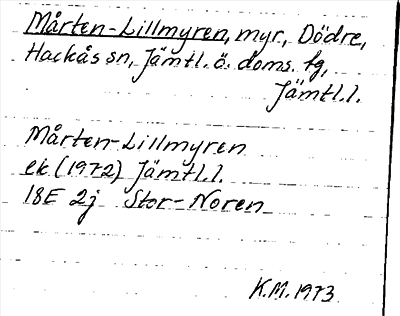 Mårten-Lillmyren, myr, Dödre,
Hackås sn, Jämtl. ö. doms. tg,
Jämtl.l.
Mårten-Lillmyren
ek (1972) Jämtl.l.
18E 2j Stor-Noren
K.M. 1973